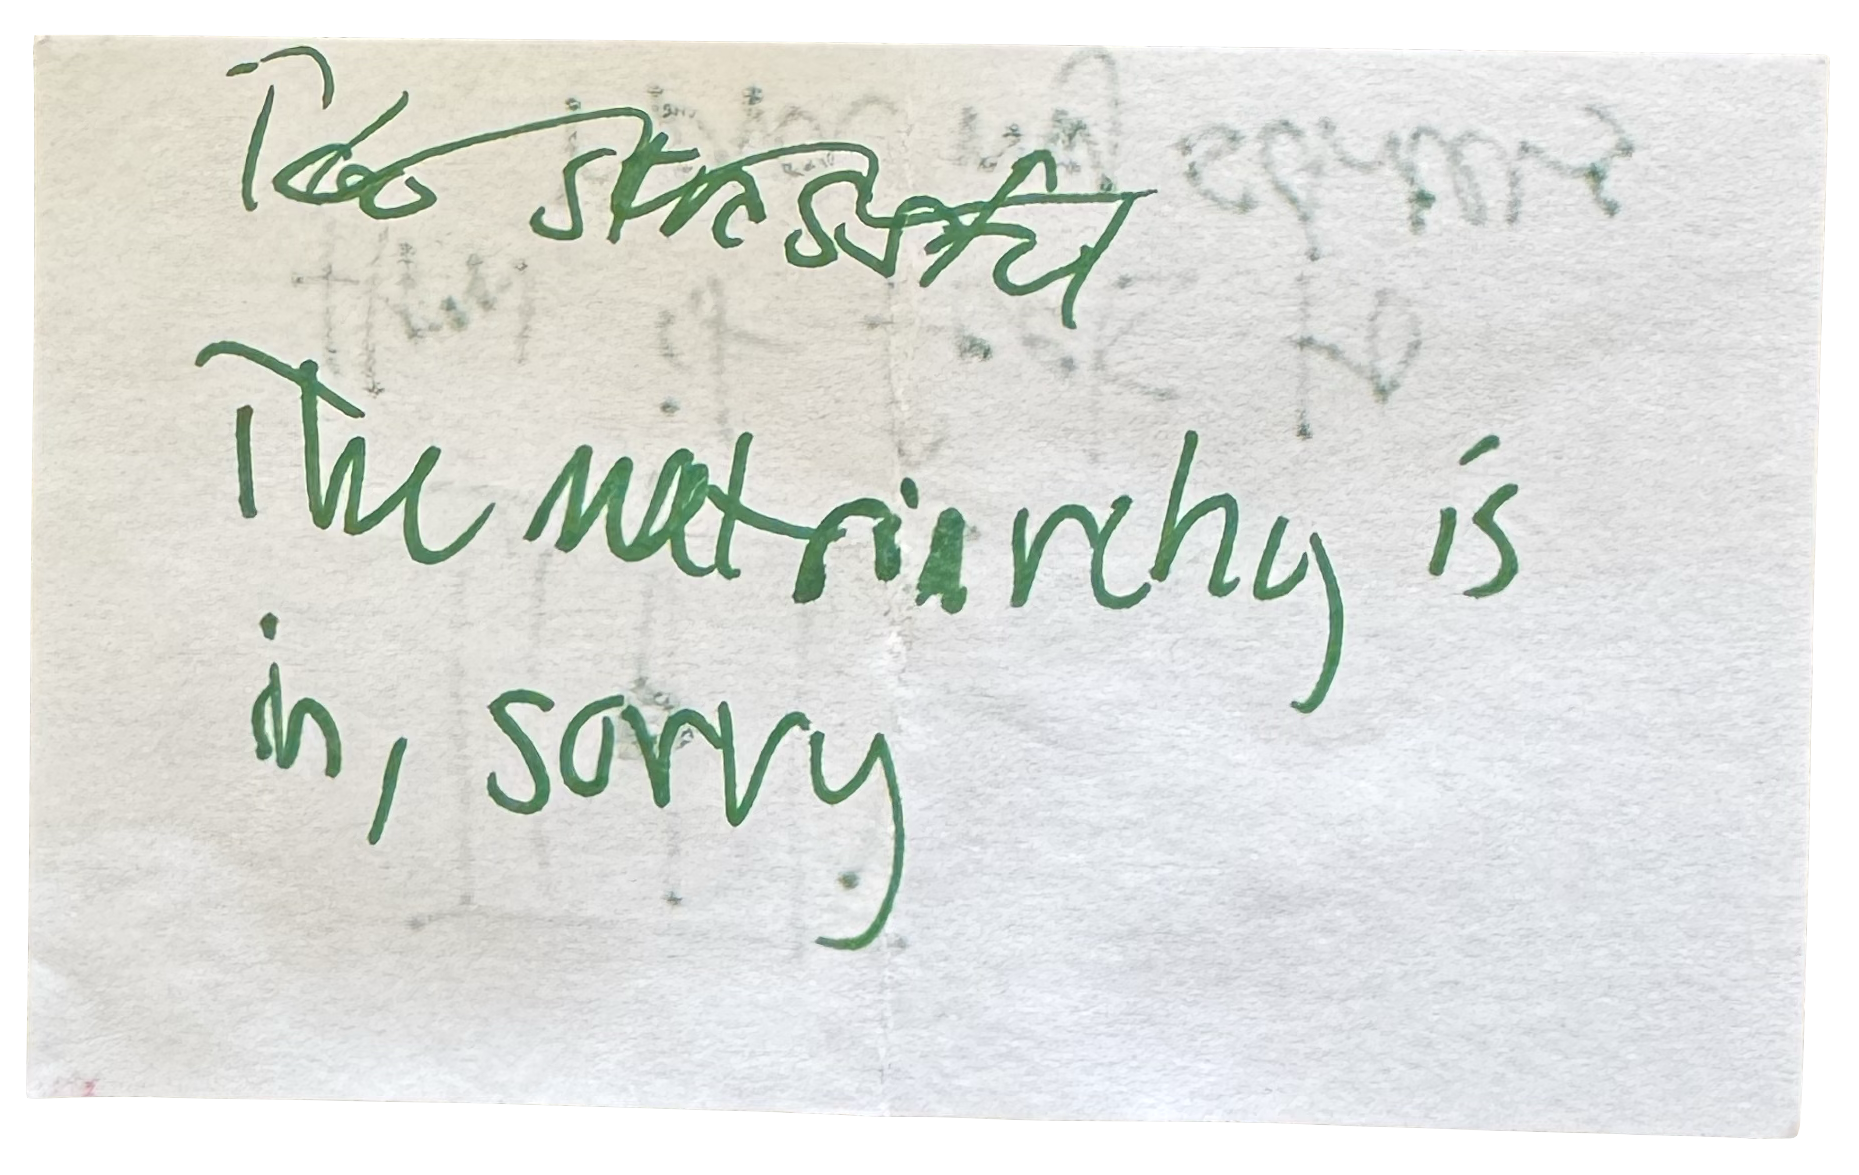 Too stressful
The matriarchy is
in, sorry